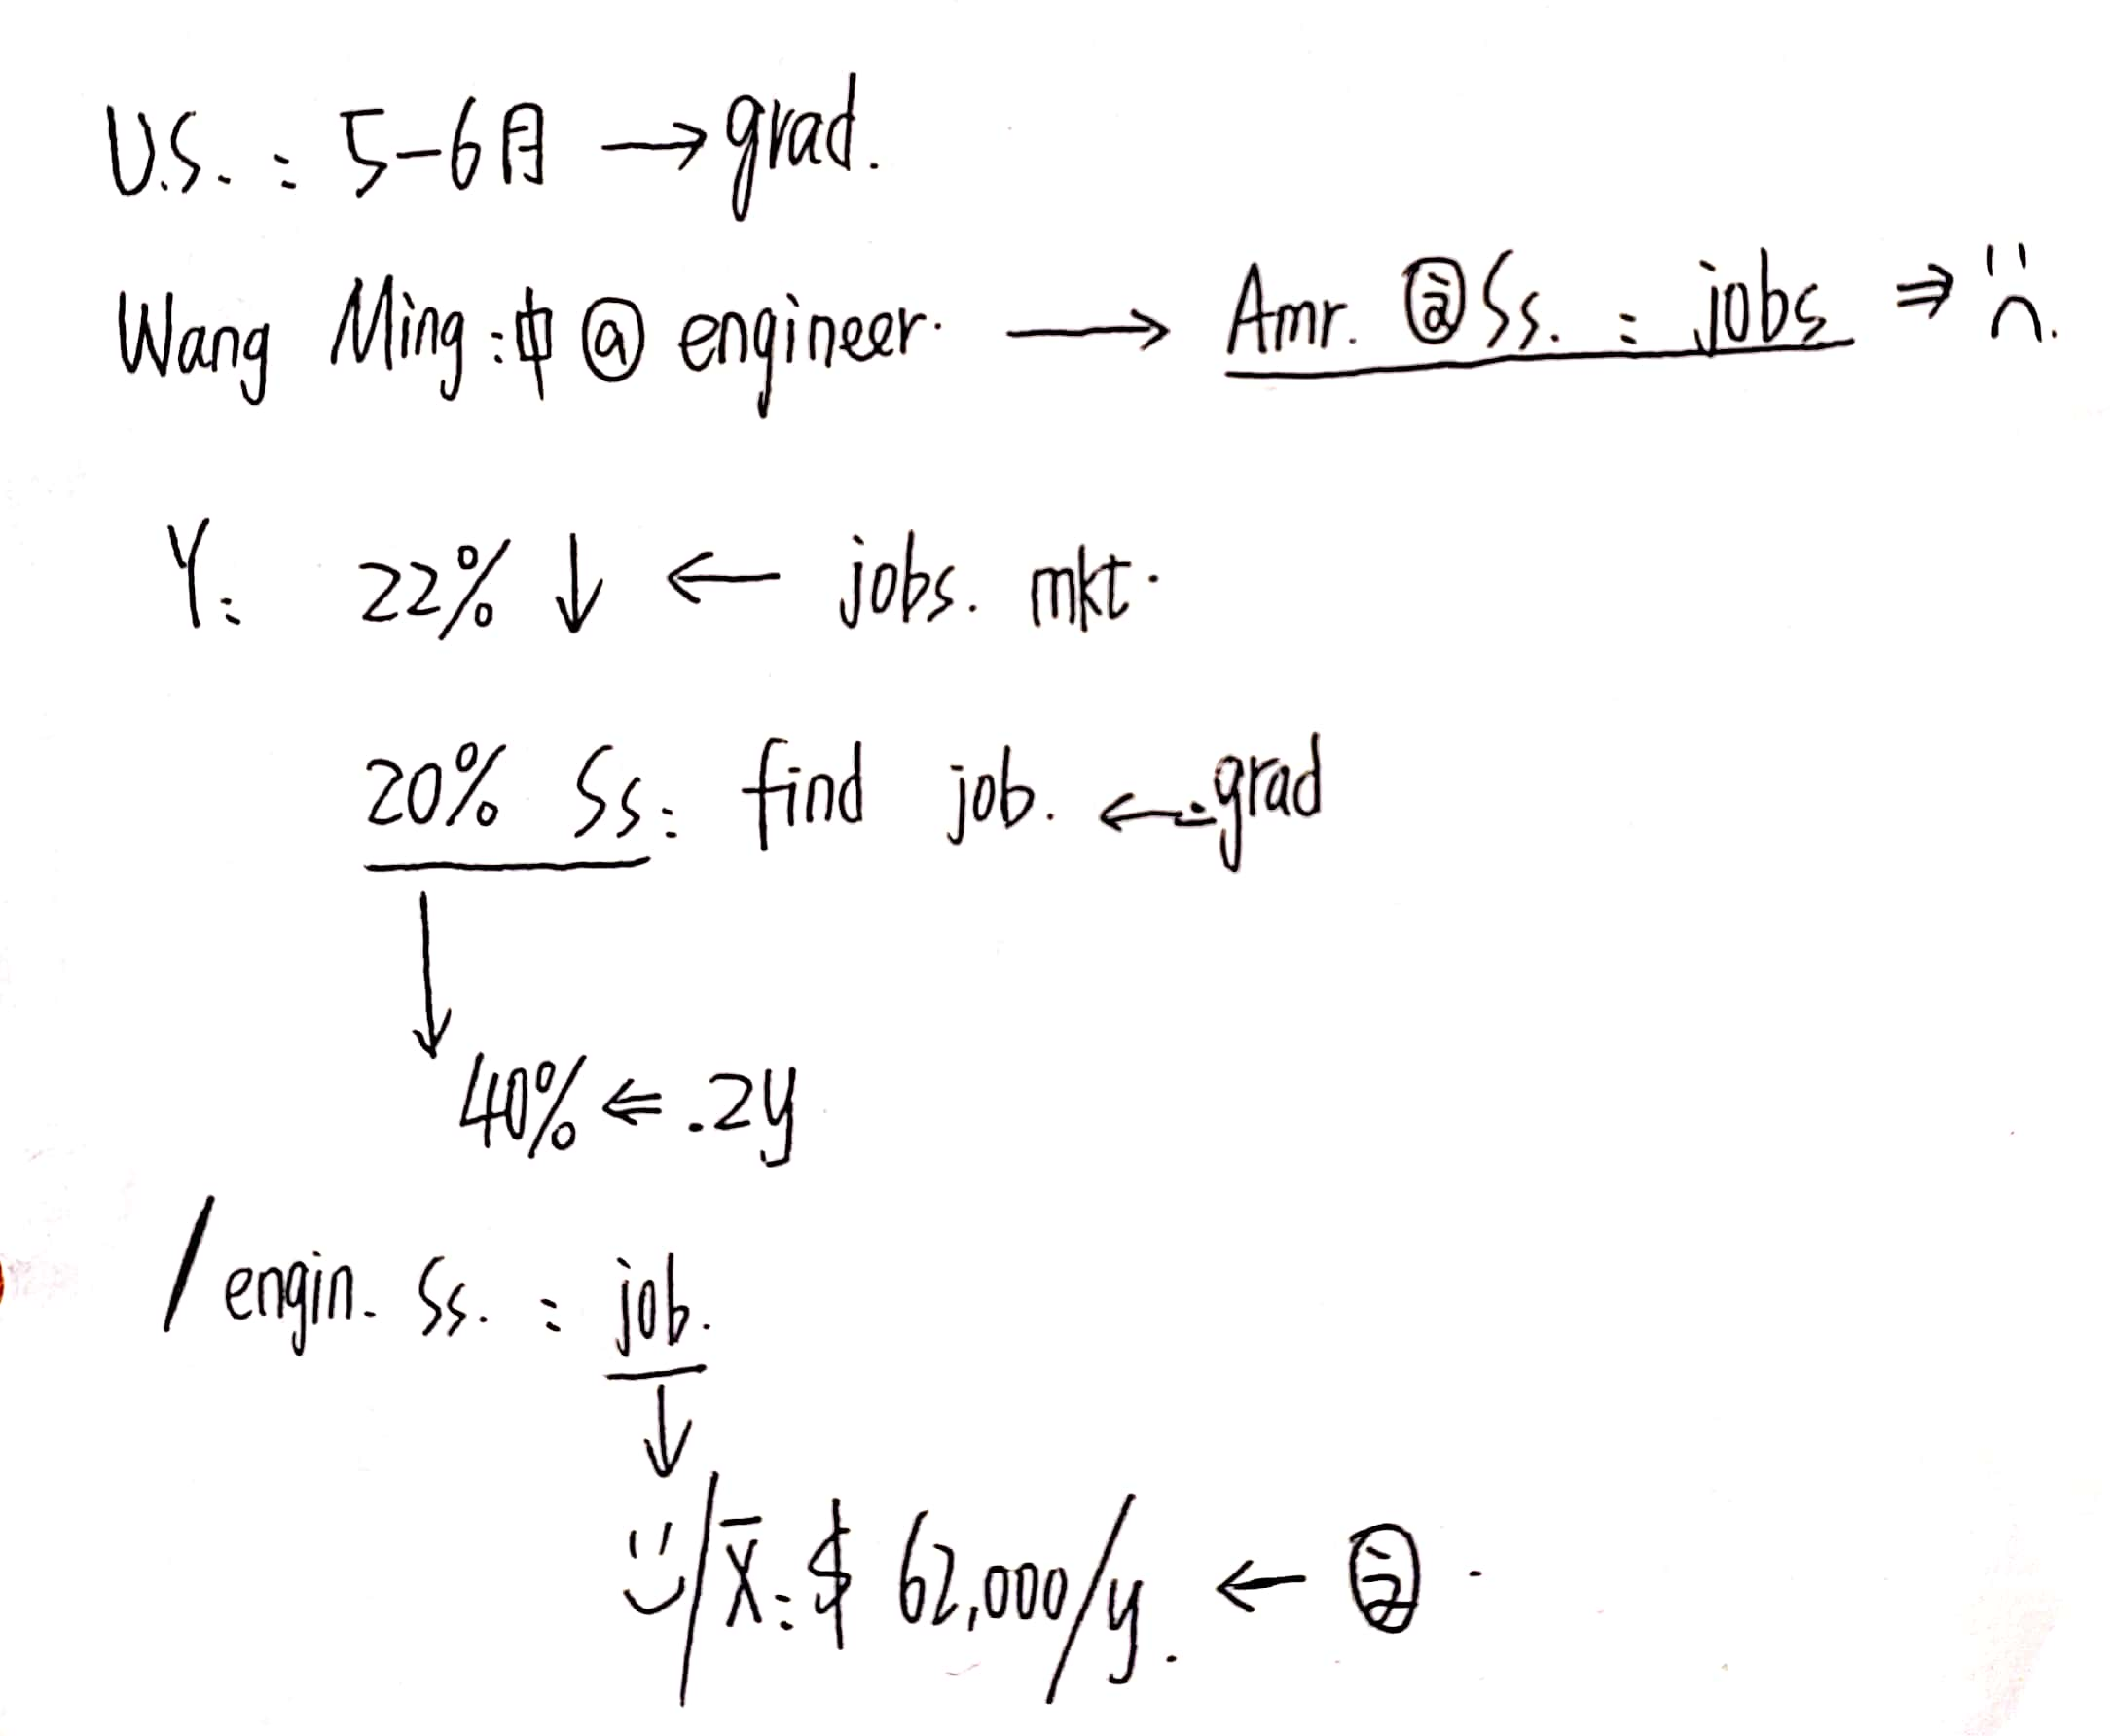 U.S. : 5-6月 → grad.
Wang Ming : 中 @ engineer. → Amr. @ Ss. : jobs ⇒ :(.
Y: 22% ↓ ← jobs. mkt.
20% Ss: find job. ← grad
↓
40% ⇐ .2y
/ engin. Ss. : job.
↓
:) / x̄: $ 62,000/y. ←